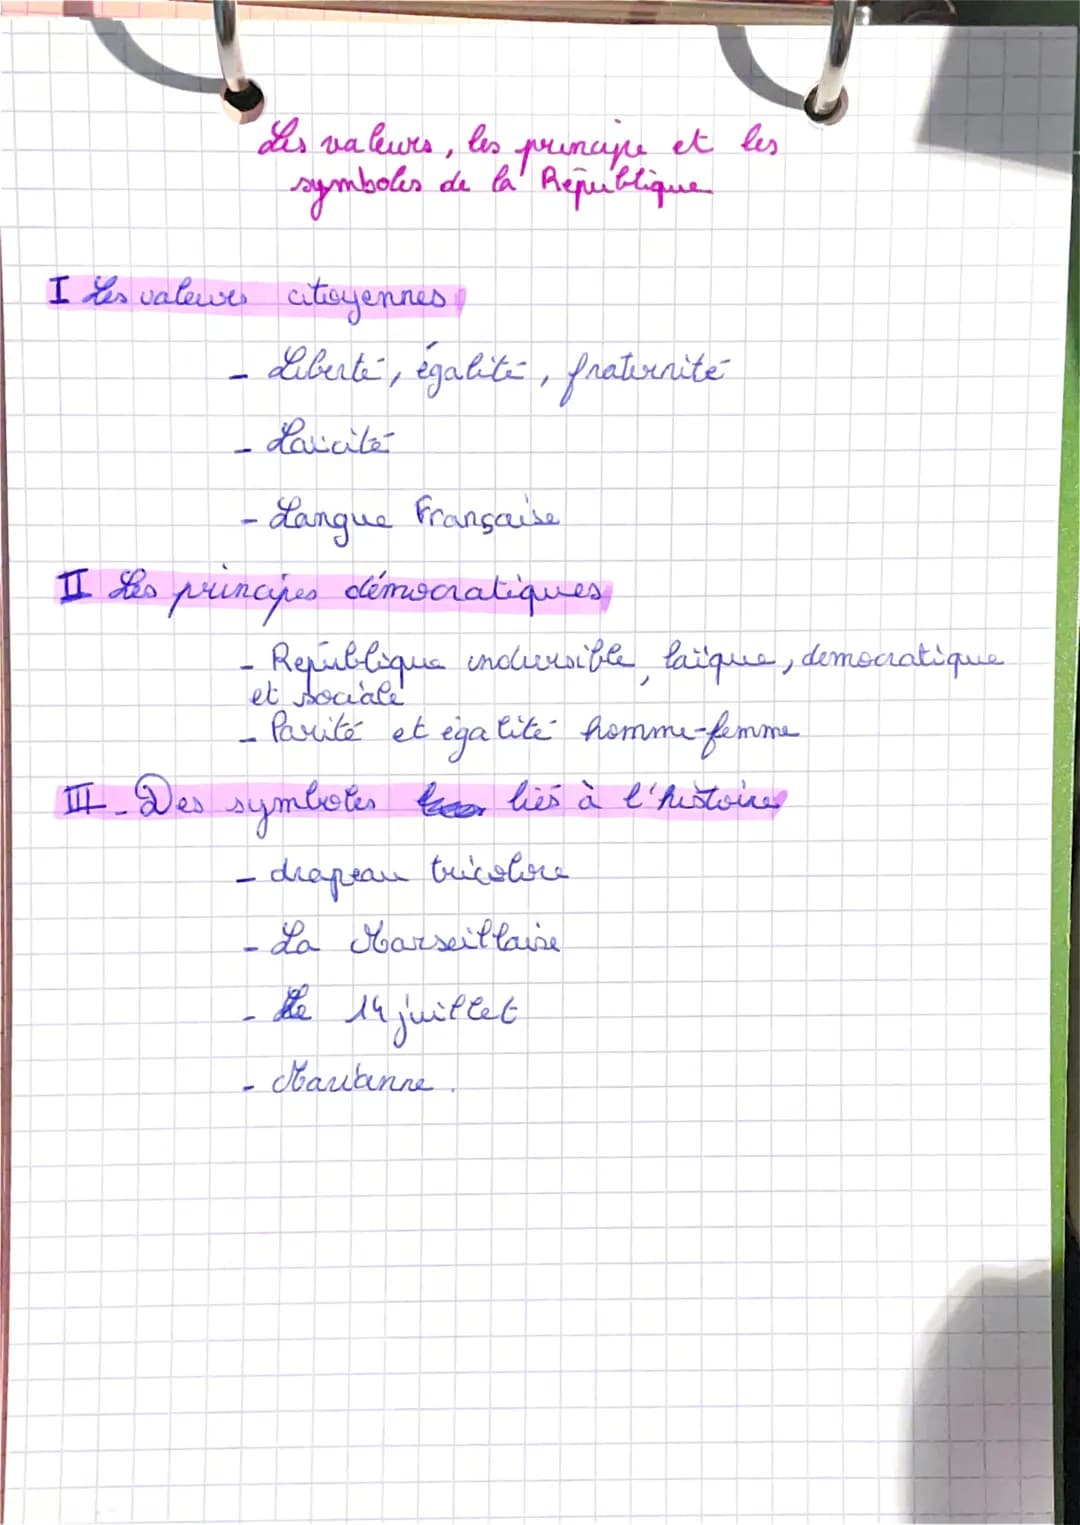 Les valeurs, les principe et les
symboles de la République
I Les valeurs citoyennes
- Liberté, égalité, fraternité
- Laicité
- Langue Française
II Les principes démocratiques
- République indivisible, laïque, démocratique
et sociale
- Parité et égalité homme-femme
III - Des symboles liés à l'histoire
- drapeau tricolore
- La Marseillaise
- Le 14 juillet
- Marianne.